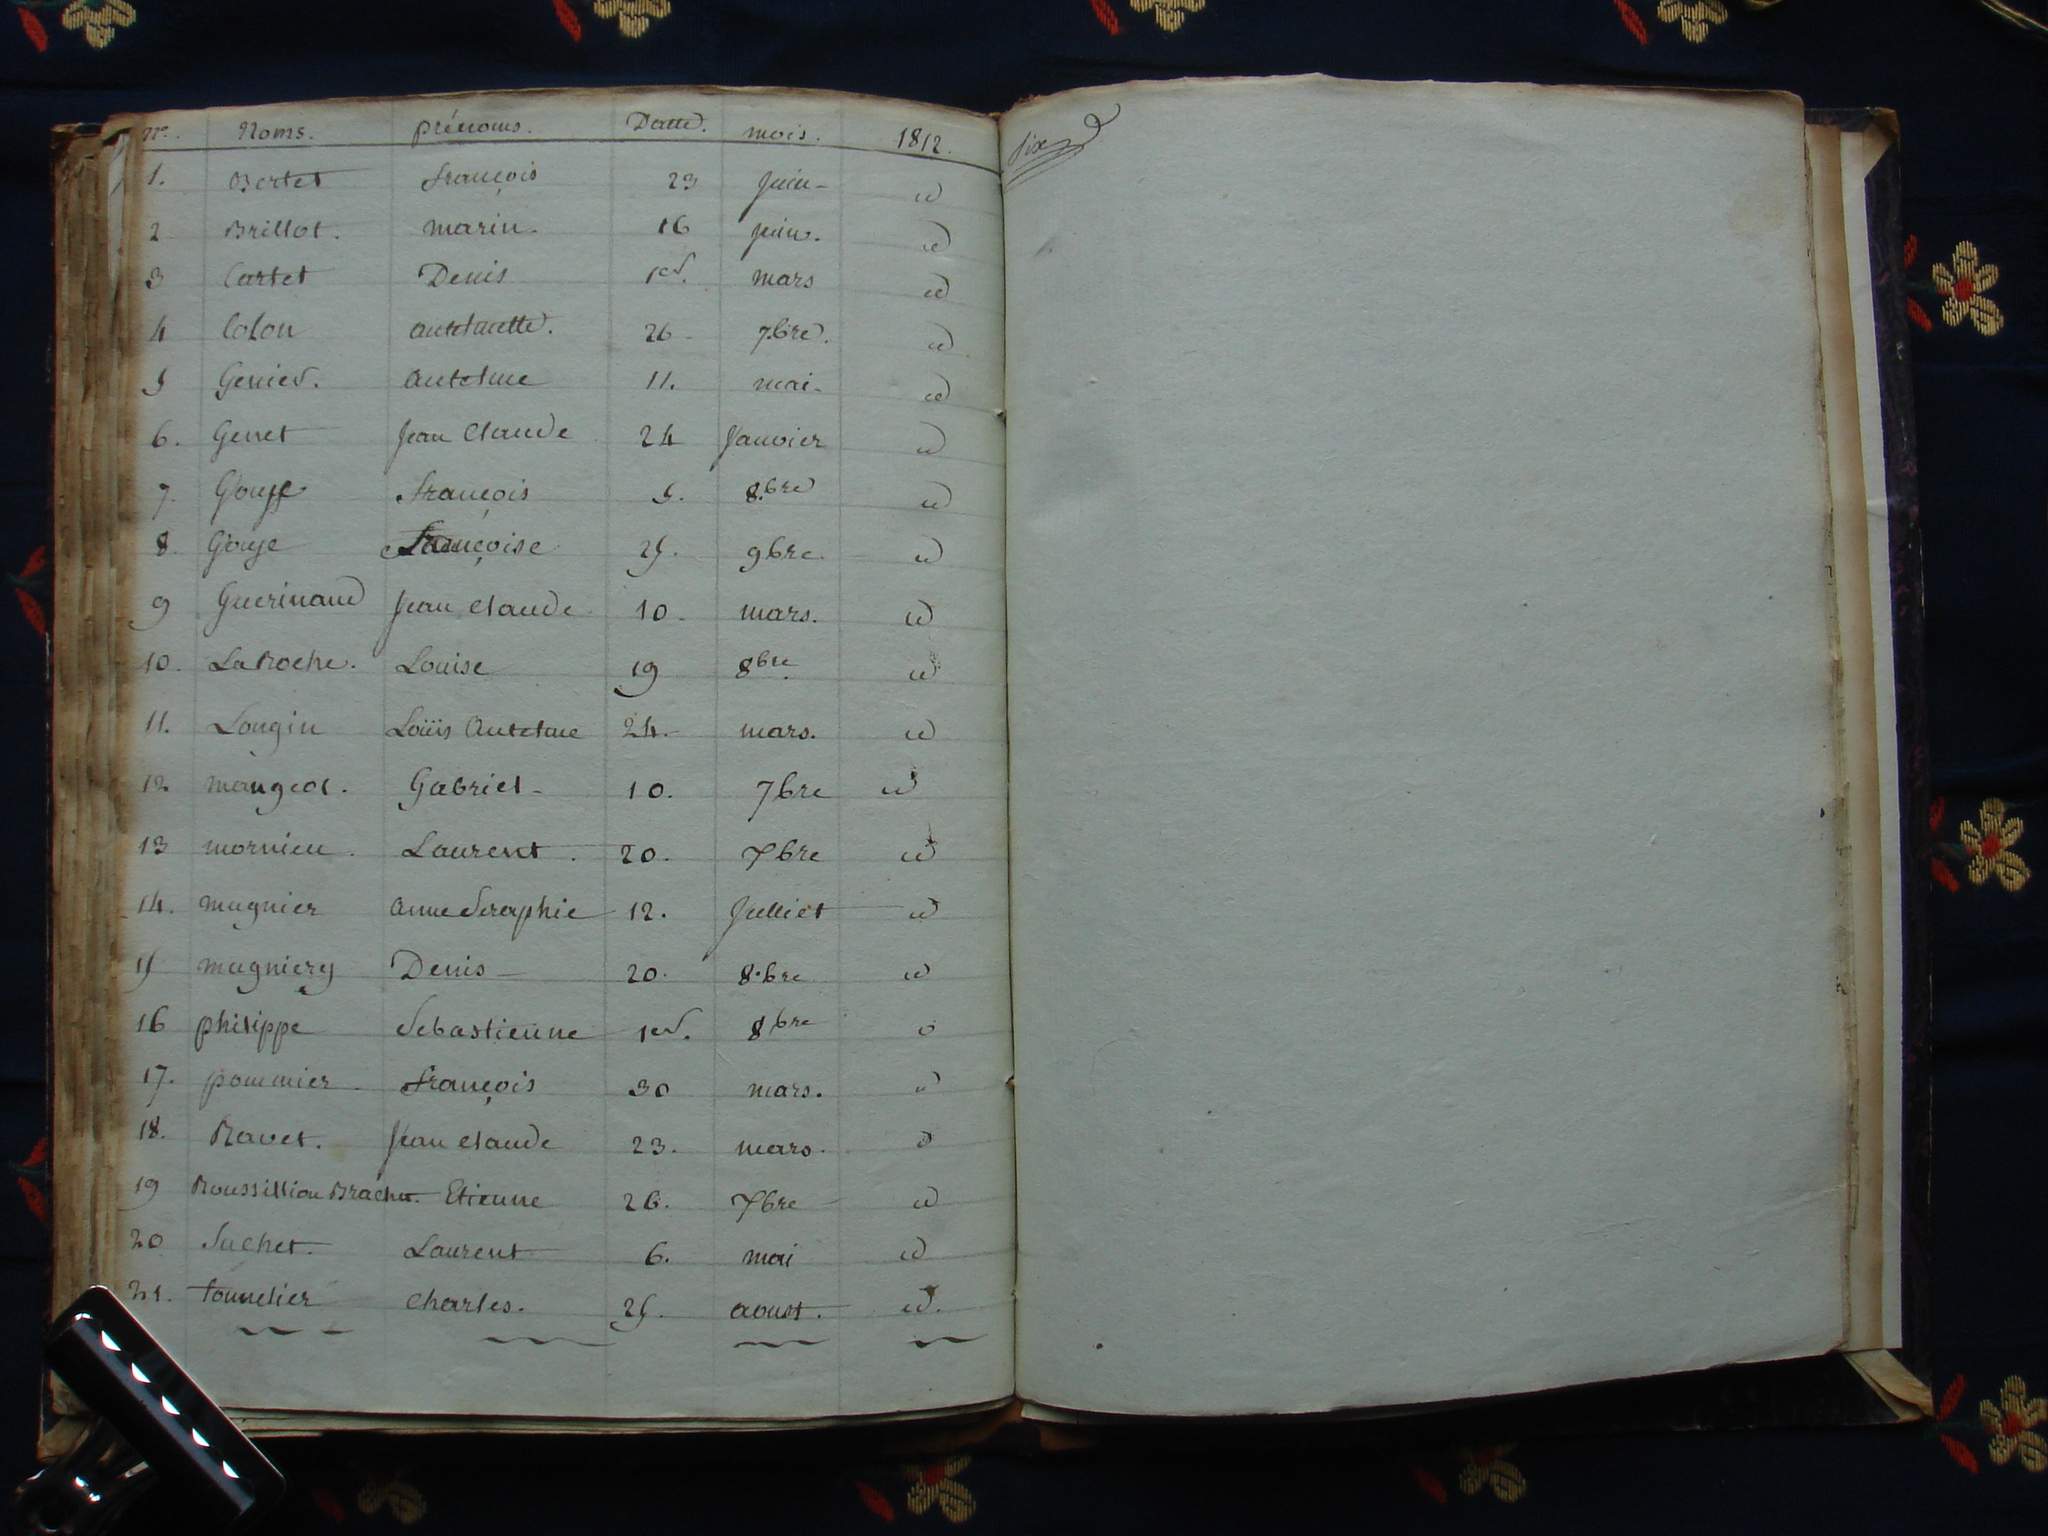 No. Noms. prénoms. Datte. mois. 1812.
1. Bertet françois 23 juin id
2 Brillot. marin. 16 juin. id
3 Cartet Denis 1er. mars id
4 Colon antelmette. 26 7.bre. id
5 Genier. antelme 11. mai id
6. Genet jean claude 24 Janvier id
7. Gouge françois 5. 8.bre id
8. Gouge françoise 25. 9bre. id
9 Guerinand jean claude 10 mars. id
10. LaRoche. Louise 19 8bre. id
11. Longin Loüis antelme 24. mars. id
12. mangeot. Gabriel 10. 7bre id
13 mornieu. Laurent. 20. 7bre id
14. mugnier anne Seraphie 12. Julliet id
15 mugniery Denis 20. 8.bre id
16 philippe Sebastienne 1er. 8bre id
17. pommier. françois 30 mars. id
18. Ravet. jean claude 23. mars. id
19 Roussillion Etienne 26. 7bre id
20 Suchet. Laurent 6. mai id
21. tonnelier charles. 25. aoust. id.
six